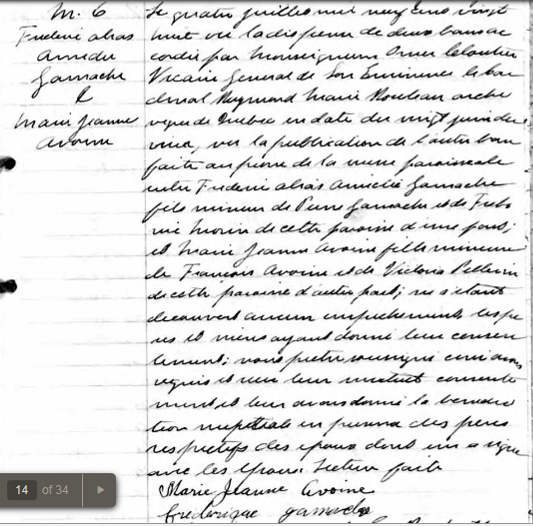 M. 6
Frederic alias
Amedee
Gamache
&
Marie Jeanne
Avoine
Le quatre juillet mil neuf cent vingt
huit vu la dispense de deux bans ac
cordée par Monseigneur Omer Cloutier
Vicaire General de Son Eminence le car
dinal Raymond Marie Rouleau arche
vêque de Québec en date du vingt juin der
nier, vu la publication de l'autre ban
faite au prone de la messe paroissiale
entre Frederic alias Amédée Gamache
fils mineur de Pierre Gamache et de
Morin de cette paroisse d'une part;
et Marie Jeanne Avoine fille mineure
de Francois Avoine et de Victoria Pellerin
de cette paroisse d'autre part; ne s'etant
decouvert aucun empechement les pe
res et mères ayant donné leur consen
tement; nous pretre soussigné curé avons
requis et reçu leur mutuel consente
ment et leur avons donné la benedic
tion nuptiale en presence des peres
respectifs des epoux dont un a signé
avec les epoux Lecture faite
Marie Jeanne Avoine
Frederique gamache
14 of 34